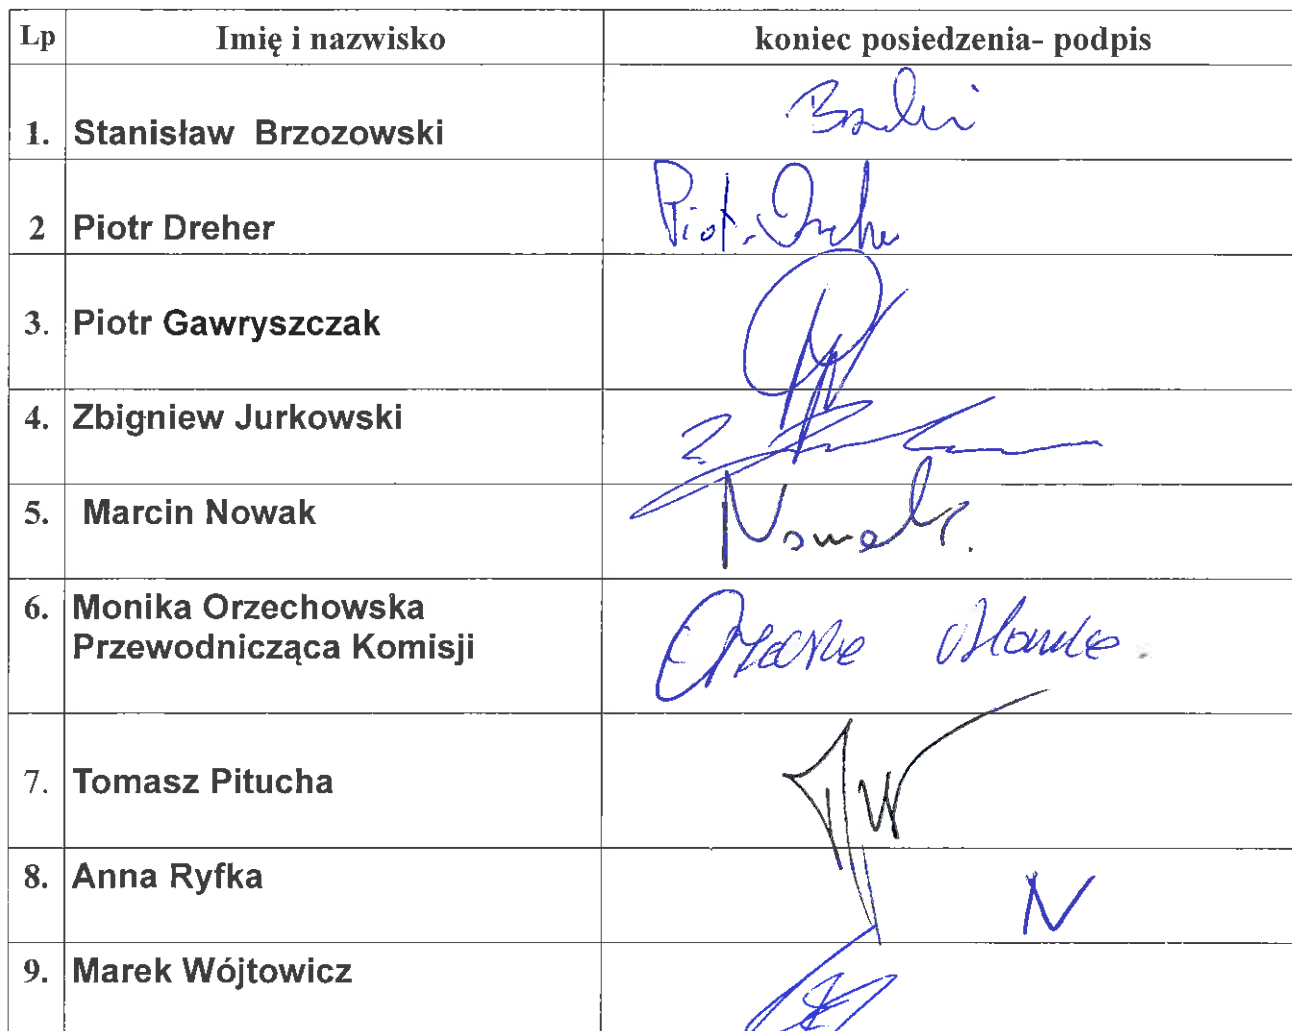 Lp Imię i nazwisko koniec posiedzenia- podpis
1. Stanisław Brzozowski
2 Piotr Dreher Piotr Dreher
3. Piotr Gawryszczak
4. Zbigniew Jurkowski
5. Marcin Nowak Nowak.
6. Monika Orzechowska
Przewodnicząca Komisji
7. Tomasz Pitucha
8. Anna Ryfka N
9. Marek Wójtowicz